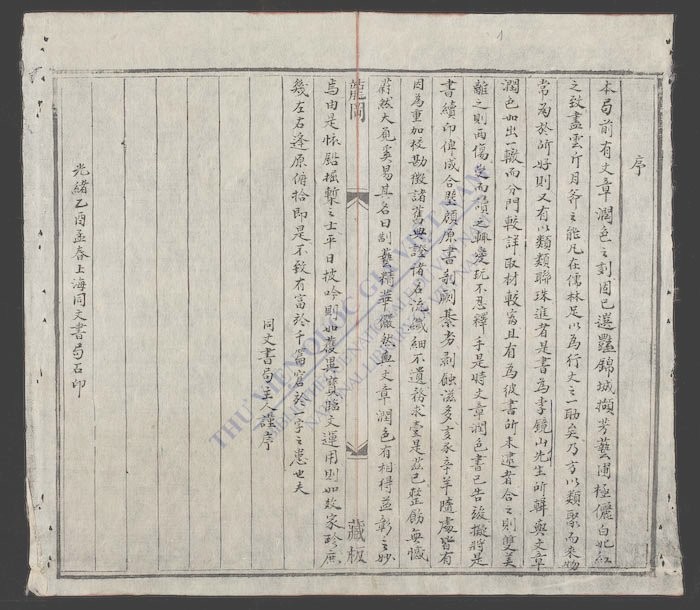 序
本局前有文章潤色之刻固已選豔錦城擷芳藝圃極儷白妃紅
之致盡雲斤月斧之能凡在儒林足以為行文之一助矣乃方以類聚而來物
常為於所好則又有以類類聯珠進者是書為李鏡山先生所輯與文章
潤色如出一轍而分門較詳取材較富且有為彼書所未逮者合之則雙美
離之則兩傷受而讀之輒愛玩不忍釋手是時文章潤色書已告竣擬將是
書續印俾成合璧顧原書剞劂棊劣剝蝕滋多亥豕辛羊隨處皆有
因為重加校勘徵諸舊典證諸名流纖細不遺務求臺是茲已整飭無憾
蔚然大觀奚易其名曰制藝精華儼然與文章潤色有相得益彰之妙
龍岡
藏板
焉由是懷鉛握槧之士平日披吟則如覆異寶臨文運用則如數家珍庶
幾左右逢原俯拾即是不致有富於千篇窘於一字之患也夫
同文書局主人謹序
光緒乙酉孟春上海同文書局石印
THƯ VIỆN QUỐC GIA VIỆT NAM
NATIONAL LIBRARY